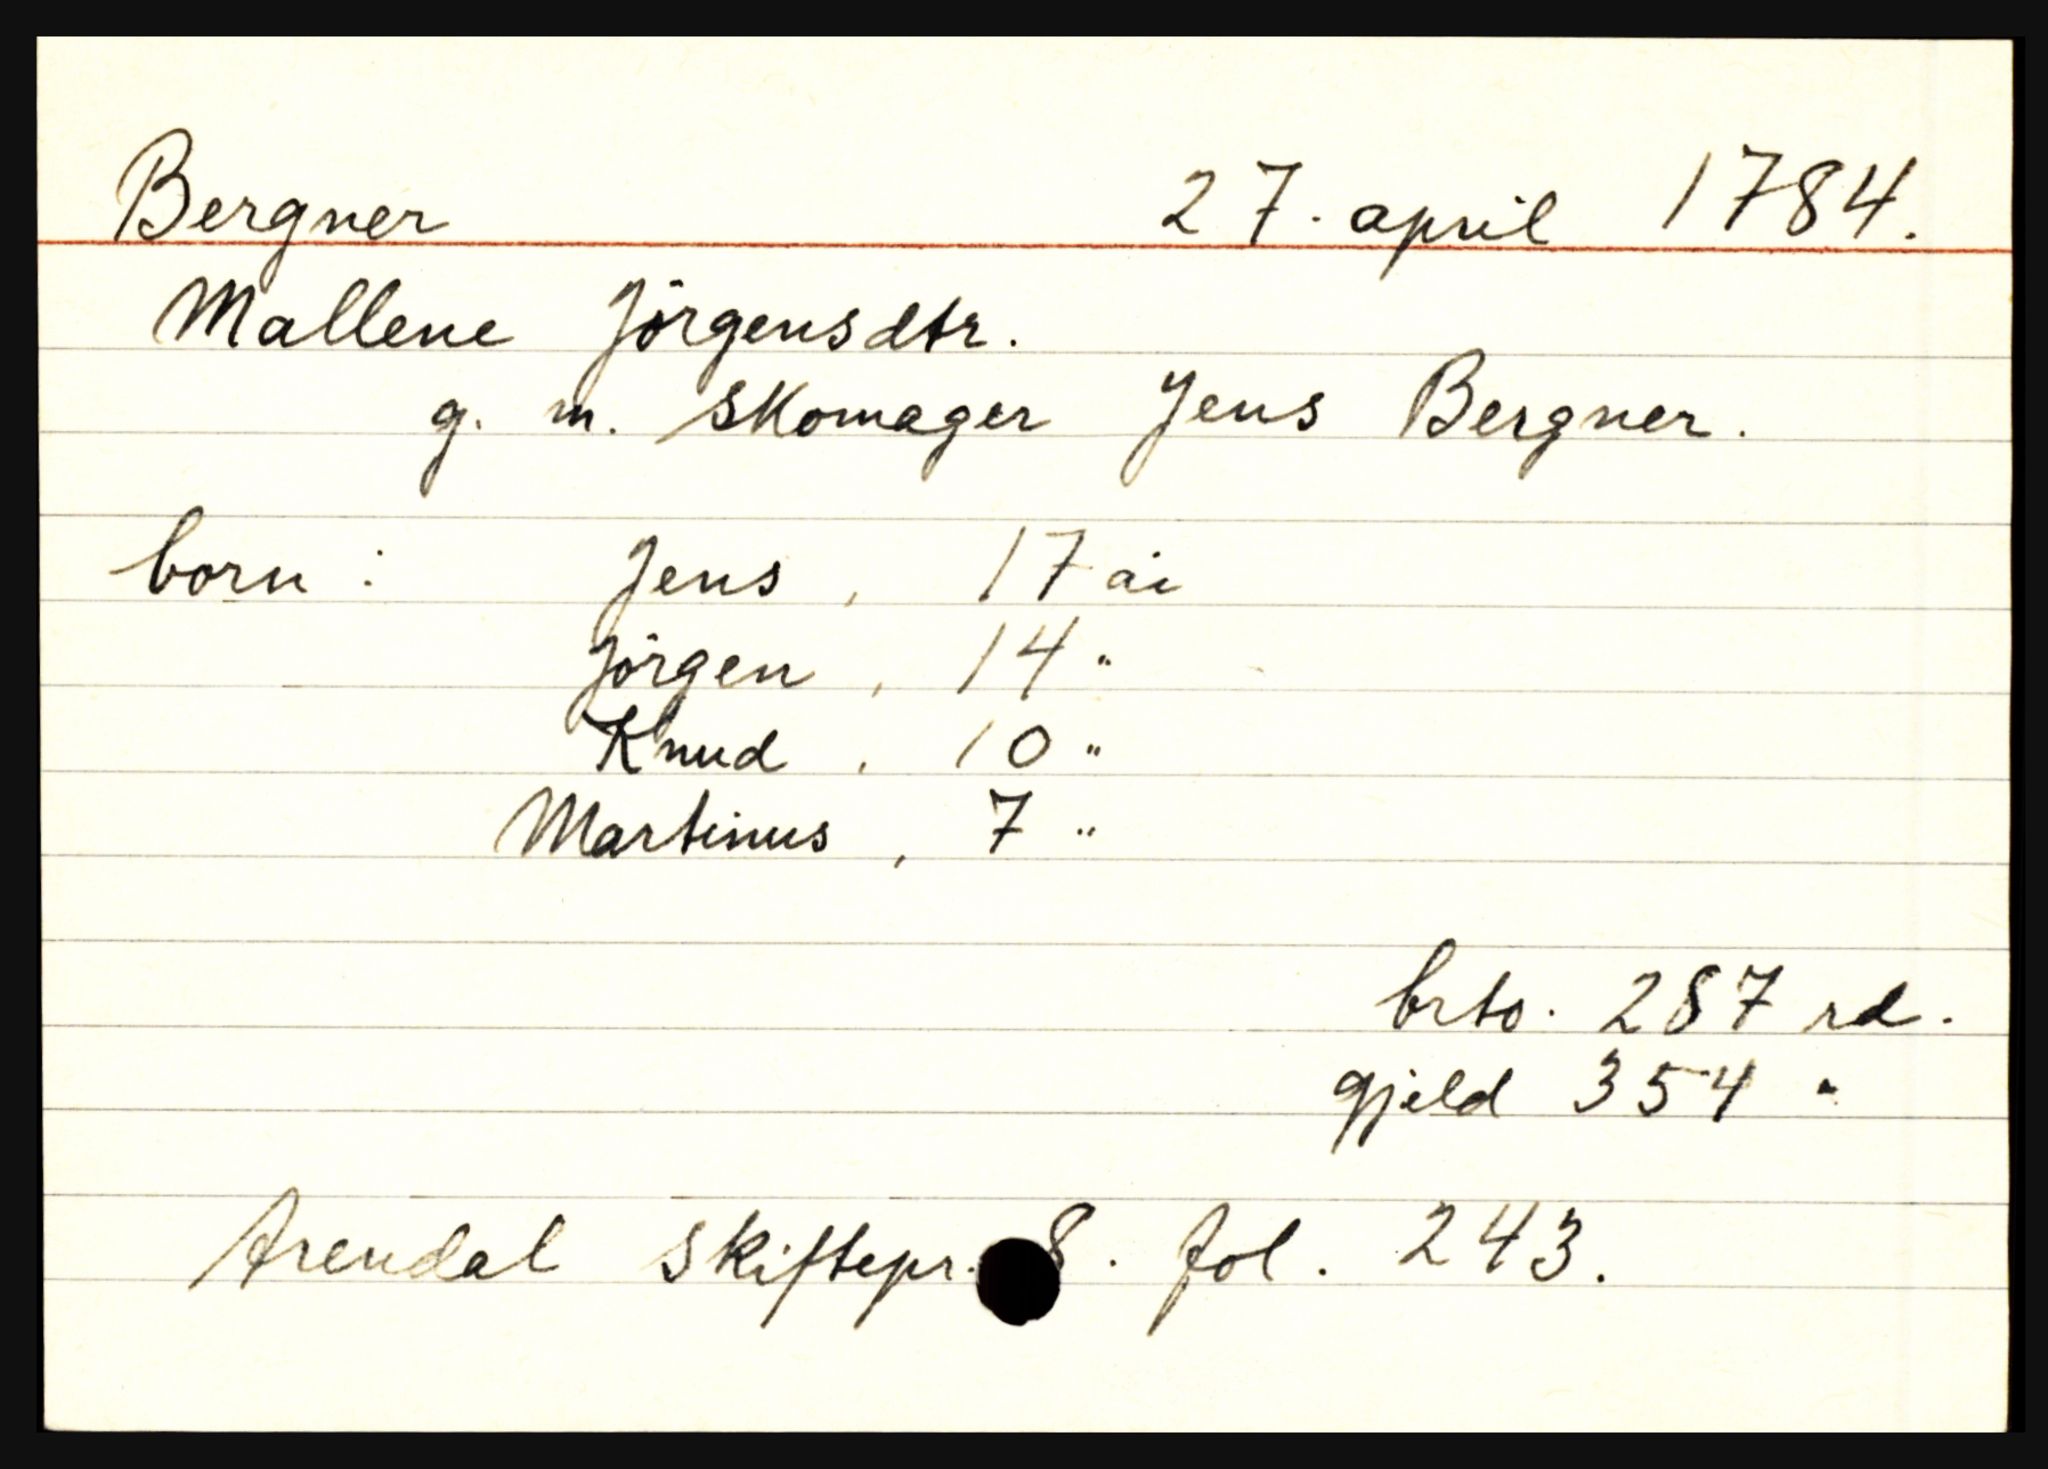 Bergner 27. april 1784.
Mallene Jörgensdtr.
g. m. skomager Jens Bergner.
born : Jens , 17 år
Jörgen , 14 "
Knud , 10 "
Martinus , 7 "
brto. 287 rd.
gjeld 354 "
Arendal skiftepr. 8. fol. 243.